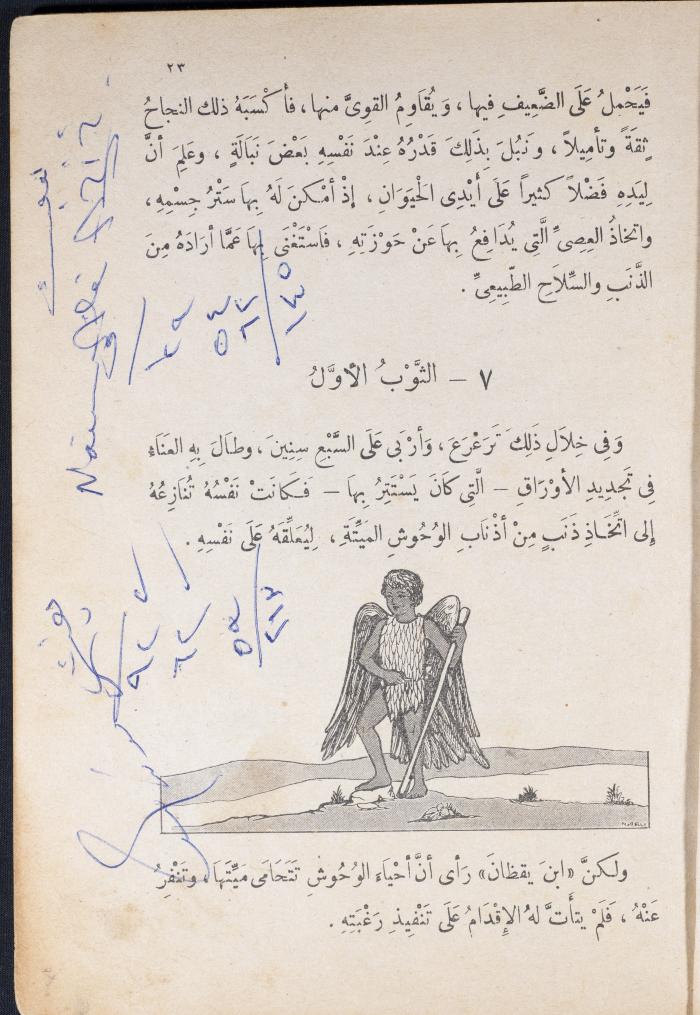 ٢٣
فَيَحْمِلُ عَلَى الضَّعِيفِ فِيها ، وَيُقَاوِمُ القَوِىَّ منها ، فَأَ كْسَبَهُ ذلك النجاحُ
ثِقَةً وتأمِيلاً ، ونَبُلَ بِذَلِكَ قَدْرُهُ عِنْدَ نَفْسِهِ بَعْضَ نَبَالَةٍ ، وعَلِمَ أنَّ
لِيَدِهِ فَضْلاً كثيراً عَلَى أَيْدِى الحَيَوَانِ ، إِذْ أمْكنَ لَهُ بِها سَتْرُ جِسْمِهِ ،
واتخاذُ العِصِىِّ الَّتِى يُدَافِعُ بِها عَنْ حَوْزَتِهِ ، فَاسْتَغْنَى بِها عَمَّا أرَادَهُ مِنَ
الذَّنَبِ والسِّلَاحِ الطَّبِيعِىِّ .
٧ – الثَّوْبُ الأوَّلُ
وَفِى خِلَالِ ذٰلِكَ تَرَعْرَعَ ، وَأرْبَى عَلَى السَّبْعِ سِنِينَ ، وطَالَ بِهِ العَنَاءِ
فِى تَجدِيدِ الأوْرَاقِ – الَّتِى كَانَ يَسْتَتِرُ بِهَا – فَكَانَتْ نَفْسُهُ تُنَازِعُهُ
إلى اتِّخَاذِ ذَنَبٍ مِنْ أذْنَابِ الوُحُوشِ المَيِّتَةِ ، لِيُعَلِّقَهُ عَلَى نَفْسِهِ .
ولٰكنَّ «ابنَ يقظانَ» رَأى أنَّ أحْيَاءَ الوُحُوشِ تَتَحَامَى مَيِّتَهَا ، وتَنْفِرُ
عَنْهُ ، فَلَمْ يتأتَّ لهُ الإقْدَامُ عَلَى تَنْفِيذِ رَغْبَتِهِ .